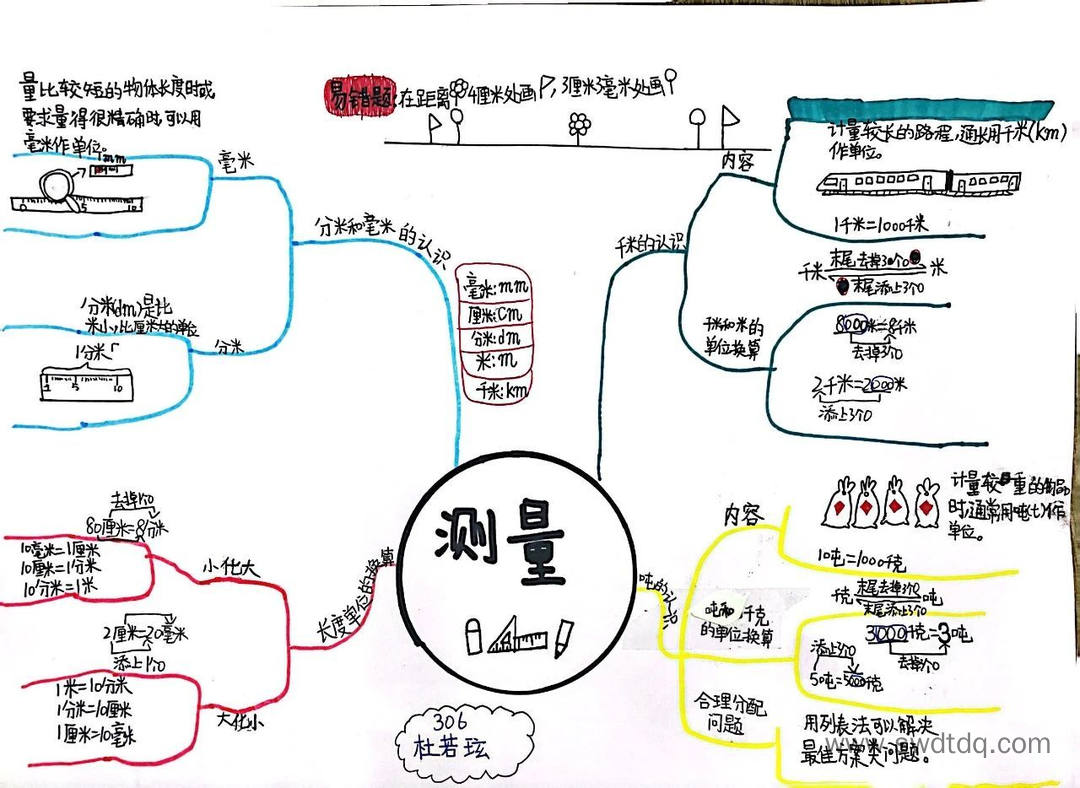 易错题:在距离4厘米处画,3厘米3毫米处画
量比较短的物体长度时或
要求量得很精确时可以用
毫米作单位。
毫米
1mm
0 5 10
分米和毫米的认识
分米(dm)是比
米小,比厘米大的单位
分米
1分米
1 5 10
毫米:mm
厘米:cm
分米:dm
米:m
千米:km
千米的认识
内容
计量较长的路程,通常用千米(km)
作单位。
1千米=1000千米
千米和米的
单位换算
末尾去掉3个0
千米 米
末尾添上3个0
8000米=8千米
去掉3个0
2千米=2000米
添上3个0
测量
长度单位的换算
小化大
去掉1个0
80厘米=8分米
10毫米=1厘米
10厘米=1分米
10分米=1米
大化小
2厘米=20毫米
添上1个0
1米=10分米
1分米=10厘米
1厘米=10毫米
吨的认识
内容
计量较重的物品
时,通常用吨(t)作
单位。
10吨=1000千克
吨和千克
的单位换算
末尾去掉3个0
千克 吨
末尾添上3个0
3000千克=3吨
去掉3个0
添上3个0
50吨=5000千克
合理分配
问题
用列表法可以解决
最佳方案类问题。
306
杜若玹